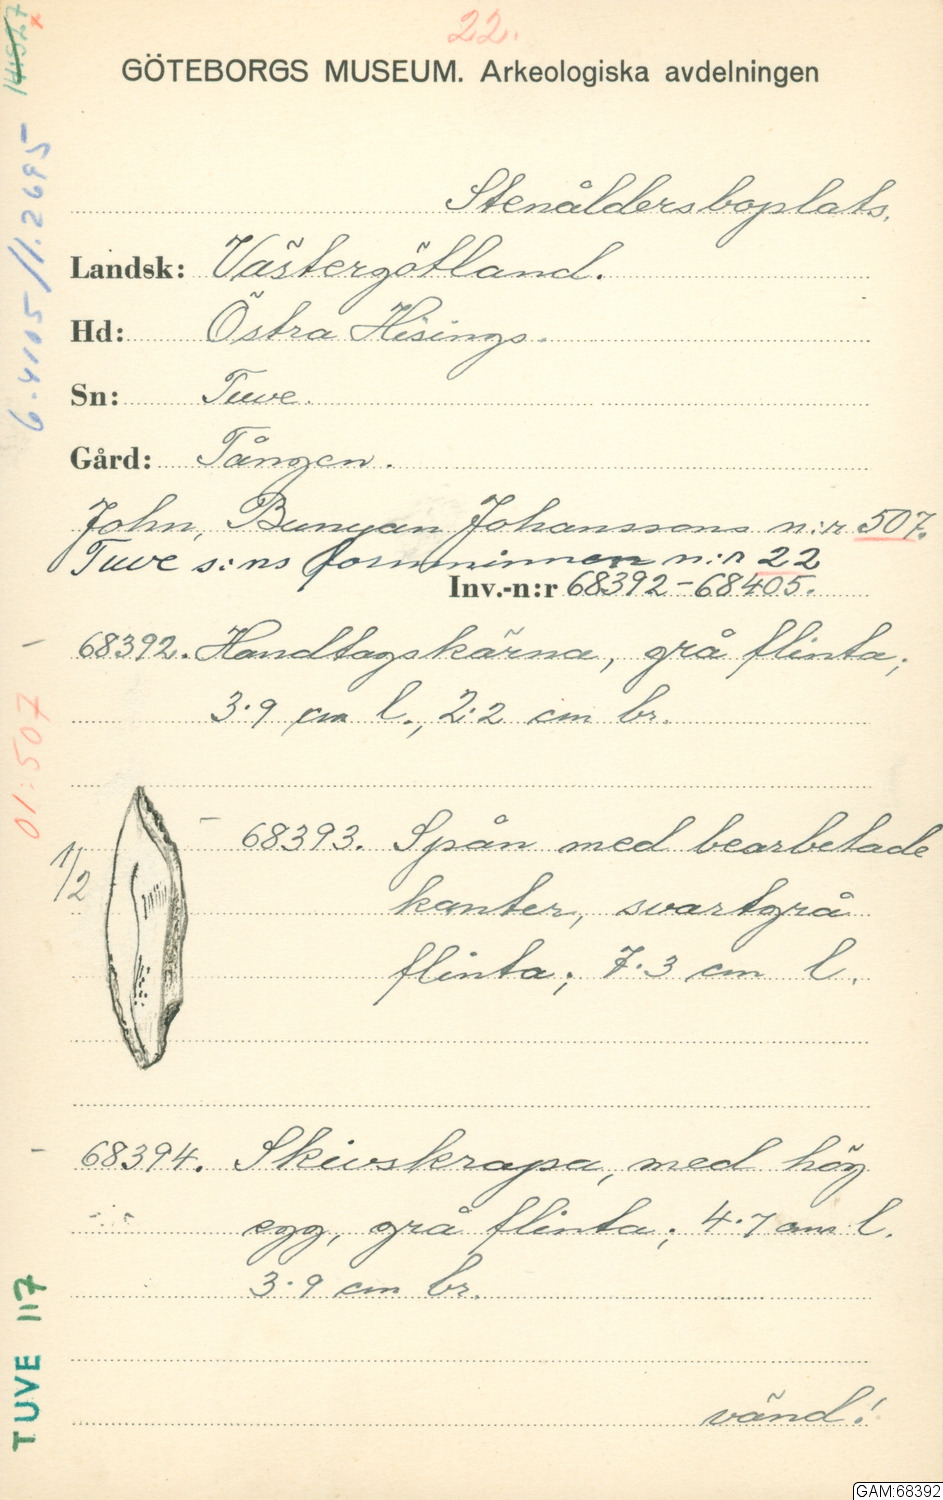 22.
GÖTEBORGS MUSEUM. Arkeologiska avdelningen
Stenåldersboplats.
Landsk: Västergötland.
Hd: Östra Hisings.
Sn: Tuve.
Gård: Tången.
John, Bunyan Johanssons n:r 507.
Tuve s:ns fornminnen n:r 22
Inv.-n:r 68392-68405.
68392. Handtagskärna, grå flinta;
3.9 cm l., 2.2 cm br.
1/2
68393. Spån med bearbetade
kanter, svartgrå
flinta; 7.3 cm l.
68394. Skivskrapa, med hög
egg, grå flinta; 4.7 cm l.
3.9 cm br.
vänd!
6.4105/1.2695
01:507
TUVE 117
GAM:68392